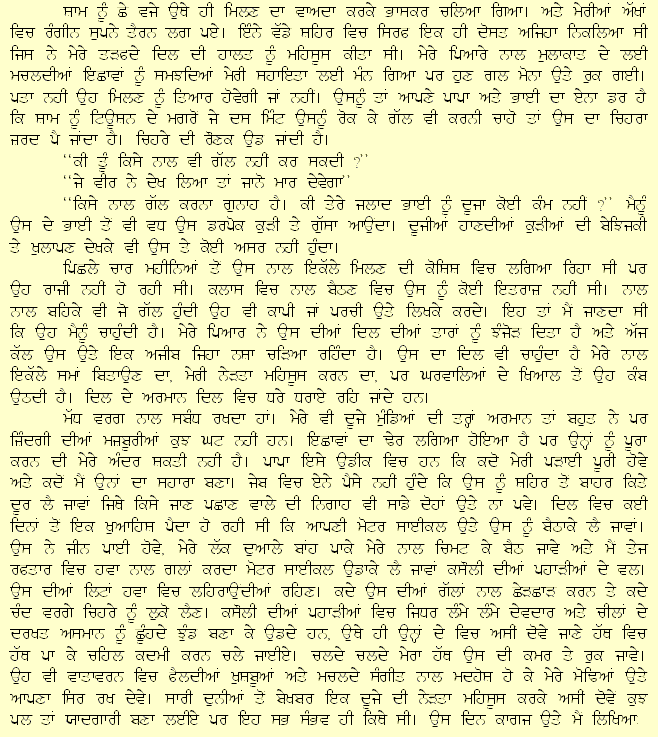 ਸਾਮ ਨੂੰ ਛੇ ਵਜੇ ਉਥੇ ਹੀ ਮਿਲਣ ਦਾ ਵਾਅਦਾ ਕਰਕੇ ਭਾਸਕਰ ਚਲਿਆ ਗਿਆ। ਅਤੇ ਮੇਰੀਆਂ ਅੱਖਾਂ
ਵਿਚ ਰੰਗੀਨ ਸੁਪਨੇ ਤੈਰਨ ਲਗ ਪਏ। ਇੰਨੇ ਵੱਡੇ ਸ਼ਹਿਰ ਵਿਚ ਸਿਰਫ ਇਕ ਹੀ ਦੋਸਤ ਅਜਿਹਾ ਨਿਕਲਿਆ ਸੀ
ਜਿਸ ਨੇ ਮੇਰੇ ਤੜਫਦੇ ਦਿਲ ਦੀ ਹਾਲਤ ਨੂੰ ਮਹਿਸੂਸ ਕੀਤਾ ਸੀ। ਮੇਰੇ ਪਿਆਰੇ ਨਾਲ ਮੁਲਾਕਾਤ ਦੇ ਲਈ
ਮਚਲਦੀਆਂ ਇਛਾਵਾਂ ਨੂੰ ਸਮਝਦਿਆਂ ਮੇਰੀ ਸਹਾਇਤਾ ਲਈ ਮੰਨ ਗਿਆ ਪਰ ਹੁਣ ਗਲ ਮੋਨਾ ਉਤੇ ਰੁਕ ਗਈ।
ਪਤਾ ਨਹੀ ਉਹ ਮਿਲਣ ਨੂੰ ਤਿਆਰ ਹੋਵੇਗੀ ਜਾਂ ਨਹੀ। ਉਸਨੂੰ ਤਾਂ ਆਪਣੇ ਪਾਪਾ ਅਤੇ ਭਾਈ ਦਾ ਏਨਾ ਡਰ ਹੈ
ਕਿ ਸਾਮ ਨੂੰ ਟਿਊਸਨ ਦੇ ਮਗਰੋਂ ਜੇ ਦਸ ਮਿੰਟ ਉਸਨੂੰ ਰੋਕ ਕੇ ਗੱਲ ਵੀ ਕਰਨੀ ਚਾਹੋ ਤਾਂ ਉਸ ਦਾ ਚਿਹਰਾ
ਜਰਦ ਪੈ ਜਾਂਦਾ ਹੈ। ਚਿਹਰੇ ਦੀ ਰੌਣਕ ਉਡ ਜਾਂਦੀ ਹੈ।
‘‘ਕੀ ਤੂੰ ਕਿਸੇ ਨਾਲ ਵੀ ਗੱਲ ਨਹੀ ਕਰ ਸਕਦੀ ?’’
‘‘ਜੇ ਵੀਰ ਨੇ ਦੇਖ ਲਿਆ ਤਾਂ ਜਾਨੋ ਮਾਰ ਦੇਵੇਗਾ’’
‘‘ਕਿਸੇ ਨਾਲ ਗੱਲ ਕਰਨਾ ਗੁਨਾਹ ਹੈ। ਕੀ ਤੇਰੇ ਜਲਾਦ ਭਾਈ ਨੂੰ ਦੂਜਾ ਕੋਈ ਕੰਮ ਨਹੀ ?’’ ਮੈਨੂੰ
ਉਸ ਦੇ ਭਾਈ ਤੋਂ ਵੀ ਵਧ ਉਸ ਡਰਪੋਕ ਕੁੜੀ ਤੇ ਗੁੱਸਾ ਆਉਂਦਾ। ਦੂਜੀਆਂ ਹਾਣਦੀਆਂ ਕੁੜੀਆਂ ਦੀ ਬੇਝਿਜਕੀ
ਤੇ ਖੁਲਾਪਣ ਦੇਖਕੇ ਵੀ ਉਸ ਤੇ ਕੋਈ ਅਸਰ ਨਹੀ ਹੁੰਦਾ।
ਪਿਛਲੇ ਚਾਰ ਮਹੀਨਿਆਂ ਤੋਂ ਉਸ ਨਾਲ ਇਕੱਲੇ ਮਿਲਣ ਦੀ ਕੋਸਿਸ ਵਿਚ ਲਗਿਆ ਰਿਹਾ ਸੀ ਪਰ
ਉਹ ਰਾਜੀ ਨਹੀ ਹੋ ਰਹੀ ਸੀ। ਕਲਾਸ ਵਿਚ ਨਾਲ ਬੈਠਣ ਵਿਚ ਉਸ ਨੂੰ ਕੋਈ ਇਤਰਾਜ ਨਹੀ ਸੀ। ਨਾਲ
ਨਾਲ ਬਹਿਕੇ ਵੀ ਜੋ ਗੱਲ ਹੁੰਦੀ ਉਹ ਵੀ ਕਾਪੀ ਜਾਂ ਪਰਚੀ ਉਤੇ ਲਿਖਕੇ ਕਰਦੇ। ਇਹ ਤਾਂ ਮੈਂ ਜਾਣਦਾ ਸੀ
ਕਿ ਉਹ ਮੈਨੂੰ ਚਾਹੁੰਦੀ ਹੈ। ਮੇਰੇ ਪਿਆਰ ਨੇ ਉਸ ਦੀਆਂ ਦਿਲ ਦੀਆਂ ਤਾਰਾਂ ਨੂੰ ਝੰਜੋੜ ਦਿਤਾ ਹੈ ਅਤੇ ਅੱਜ
ਕੱਲ ਉਸ ਉਤੇ ਇਕ ਅਜੀਬ ਜਿਹਾ ਨਸਾ ਚੜਿਆ ਰਹਿੰਦਾ ਹੈ। ਉਸ ਦਾ ਦਿਲ ਵੀ ਚਾਹੁੰਦਾ ਹੈ ਮੇਰੇ ਨਾਲ
ਇਕੱਲੇ ਸਮਾਂ ਬਿਤਾਉਣ ਦਾ, ਮੇਰੀ ਨੇੜਤਾ ਮਹਿਸੂਸ ਕਰਨ ਦਾ, ਪਰ ਘਰਵਾਲਿਆਂ ਦੇ ਖਿਆਲ ਤੋਂ ਉਹ ਕੰਬ
ਉਠਦੀ ਹੈ। ਦਿਲ ਦੇ ਅਰਮਾਨ ਦਿਲ ਵਿਚ ਧਰੇ ਧਰਾਏ ਰਹਿ ਜਾਂਦੇ ਹਨ।
ਮੱਧ ਵਰਗ ਨਾਲ ਸਬੰਧ ਰਖਦਾ ਹਾਂ। ਮੇਰੇ ਵੀ ਦੂਜੇ ਮੁੰਡਿਆਂ ਦੀ ਤਰ੍ਹਾਂ ਅਰਮਾਨ ਤਾਂ ਬਹੁਤ ਨੇ ਪਰ
ਜ਼ਿੰਦਗੀ ਦੀਆਂ ਮਜਬੂਰੀਆਂ ਕੁਝ ਘਟ ਨਹੀ ਹਨ। ਇਛਾਵਾਂ ਦਾ ਢੇਰ ਲਗਿਆ ਹੋਇਆ ਹੈ ਪਰ ਉਨ੍ਹਾਂ ਨੂੰ ਪੂਰਾ
ਕਰਨ ਦੀ ਮੇਰੇ ਅੰਦਰ ਸਕਤੀ ਨਹੀ ਹੈ। ਪਾਪਾ ਇਸੇ ਉਡੀਕ ਵਿਚ ਹਨ ਕਿ ਕਦੋ ਮੇਰੀ ਪੜਾਈ ਪੂਰੀ ਹੋਵੇ
ਅਤੇ ਕਦੋਂ ਮੈਂ ਉਨਾਂ ਦਾ ਸਹਾਰਾ ਬਣਾ। ਜੇਬ ਵਿਚ ਏਨੇ ਪੈਸੇ ਨਹੀ ਹੁੰਦੇ ਕਿ ਉਸ ਨੂੰ ਸ਼ਹਿਰ ਤੋਂ ਬਾਹਰ ਕਿਤੇ
ਦੂਰ ਲੈ ਜਾਵਾਂ ਜਿਥੇ ਕਿਸੇ ਜਾਣ ਪਛਾਣ ਵਾਲੇ ਦੀ ਨਿਗਾਹ ਵੀ ਸਾਡੇ ਦੋਹਾਂ ਉਤੇ ਨਾ ਪਵੇ। ਦਿਲ ਵਿਚ ਕਈ
ਦਿਨਾਂ ਤੋਂ ਇਕ ਖੁਆਹਿਸ ਪੈਦਾ ਹੋ ਰਹੀ ਸੀ ਕਿ ਆਪਣੀ ਮੋਟਰ ਸਾਈਕਲ ਉਤੇ ਉਸ ਨੂੰ ਬੈਠਾਕੇ ਲੈ ਜਾਵਾਂ।
ਉਸ ਨੇ ਜੀਨ ਪਾਈ ਹੋਵੇ, ਮੇਰੇ ਲੱਕ ਦੁਆਲੇ ਬਾਂਹ ਪਾਕੇ ਮੇਰੇ ਨਾਲ ਚਿਮਟ ਕੇ ਬੈਠ ਜਾਵੇ ਅਤੇ ਮੈਂ ਤੇਜ
ਰਫਤਾਰ ਵਿਚ ਹਵਾ ਨਾਲ ਗਲਾਂ ਕਰਦਾ ਮੋਟਰ ਸਾਈਕਲ ਉਡਾਕੇ ਲੈ ਜਾਵਾਂ ਕਸੋਲੀ ਦੀਆਂ ਪਹਾੜੀਆਂ ਦੇ ਵਲ।
ਉਸ ਦੀਆਂ ਲਿਟਾਂ ਹਵਾ ਵਿਚ ਲਹਿਰਾਉਂਦੀਆਂ ਰਹਿਣ। ਕਦੇ ਉਸ ਦੀਆਂ ਗੱਲਾਂ ਨਾਲ ਛੇੜਛਾੜ ਕਰਨ ਤੇ ਕਦੇ
ਚੰਦ ਵਰਗੇ ਚਿਹਰੇ ਨੂੰ ਲੁਕੋ ਲੈਣ। ਕਸੋਲੀ ਦੀਆਂ ਪਹਾੜੀਆਂ ਵਿਚ ਜਿਧਰ ਲੰਮੇ ਲੰਮੇ ਦੇਵਦਾਰ ਅਤੇ ਚੀਲਾਂ ਦੇ
ਦਰਖਤ ਅਸਮਾਨ ਨੂੰ ਛੂੰਹਦੇ ਝੁੰਡ ਬਣਾ ਕੇ ਉਡਦੇ ਹਨ, ਉਥੇ ਹੀ ਉਨ੍ਹਾਂ ਦੇ ਵਿਚ ਅਸੀ ਦੋਵੇ ਜਾਣੇ ਹੱਥ ਵਿਚ
ਹੱਥ ਪਾ ਕੇ ਚਹਿਲ ਕਦਮੀ ਕਰਨ ਚਲੇ ਜਾਈਏ। ਚਲਦੇ ਚਲਦੇ ਮੇਰਾ ਹੱਥ ਉਸ ਦੀ ਕਮਰ ਤੇ ਰੁਕ ਜਾਵੇ।
ਉਹ ਵੀ ਵਾਤਾਵਰਨ ਵਿਚ ਫੈਲਦੀਆਂ ਖੁਸਬੂਆਂ ਅਤੇ ਮਚਲਦੇ ਸੰਗੀਤ ਨਾਲ ਮਦਹੋਸ ਹੋ ਕੇ ਮੇਰੇ ਮੋਢਿਆਂ ਉਤੇ
ਆਪਣਾ ਸਿਰ ਰਖ ਦੇਵੇ। ਸਾਰੀ ਦੁਨੀਆਂ ਤੋ ਬੇਖਬਰ ਇਕ ਦੂਜੇ ਦੀ ਨੇੜਤਾ ਮਹਿਸੂਸ ਕਰਕੇ ਅਸੀ ਦੋਵੇ ਕੁਝ
ਪਲ ਤਾਂ ਯਾਦਗਾਰੀ ਬਣਾ ਲਈਏ ਪਰ ਇਹ ਸਭ ਸੰਭਵ ਹੀ ਕਿਥੇ ਸੀ। ਉਸ ਦਿਨ ਕਾਗਜ ਉਤੇ ਮੈਂ ਲਿਖਿਆ